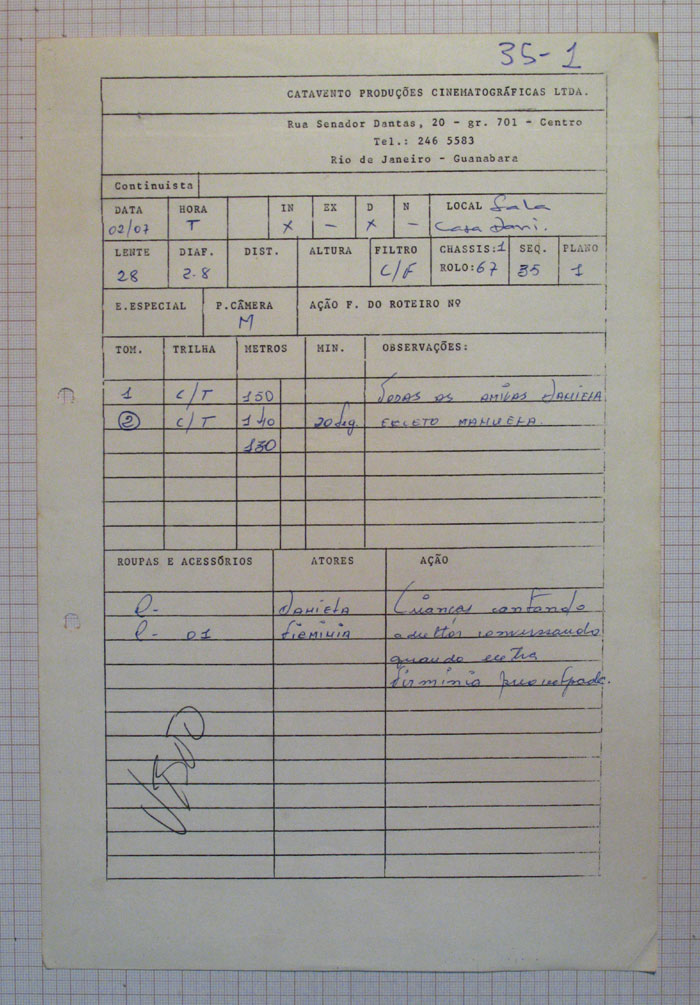 35-1
CATAVENTO PRODUÇÕES CINEMATOGRÁFICAS LTDA.
Rua Senador Dantas, 20 - gr. 701 - Centro
Tel.: 246 5583
Rio de Janeiro - Guanabara
Continuista
DATA HORA IN EX D N LOCAL Sala
02/07 T X - X - Casa Dani.
LENTE DIAF. DIST. ALTURA FILTRO CHASSIS:1 SEQ. PLANO
28 2.8 C/F ROLO:67 35 1
E.ESPECIAL P.CÂMERA AÇÃO F. DO ROTEIRO Nº
M
TOM. TRILHA METROS MIN. OBSERVAÇÕES:
1 C/T 150 TODAS AS AMIGAS DANIELA
2 C/T 140 20 seg. EXCETO MANUELA.
130
ROUPAS E ACESSÓRIOS ATORES AÇÃO
DANIELA Crianças cantando
01 FIRMINIA adultos conversando
quando entra
Firminia preocupada.